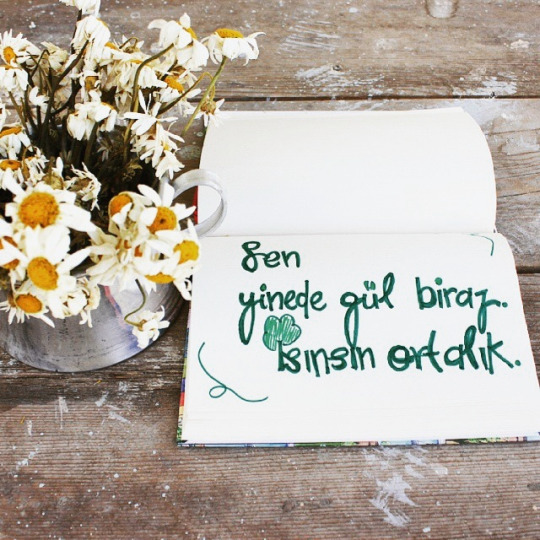 Sen
yinede gül biraz.
Isınsın ortalık.